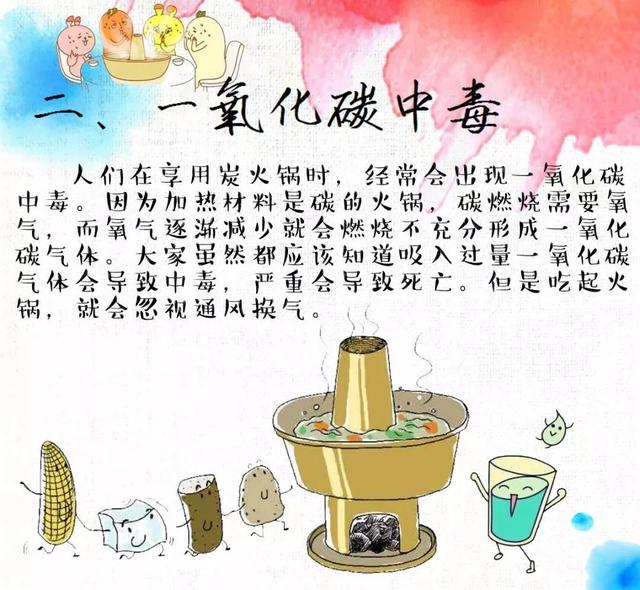 二、一氧化碳中毒
人们在享用炭火锅时，经常会出现一氧化碳
中毒。因为加热材料是碳的火锅，碳燃烧需要氧
气，而氧气逐渐减少就会燃烧不充分形成一氧化
碳气体。大家虽然都应该知道吸入过量一氧化碳
气体会导致中毒，严重会导致死亡。但是吃起火
锅，就会忽视通风换气。